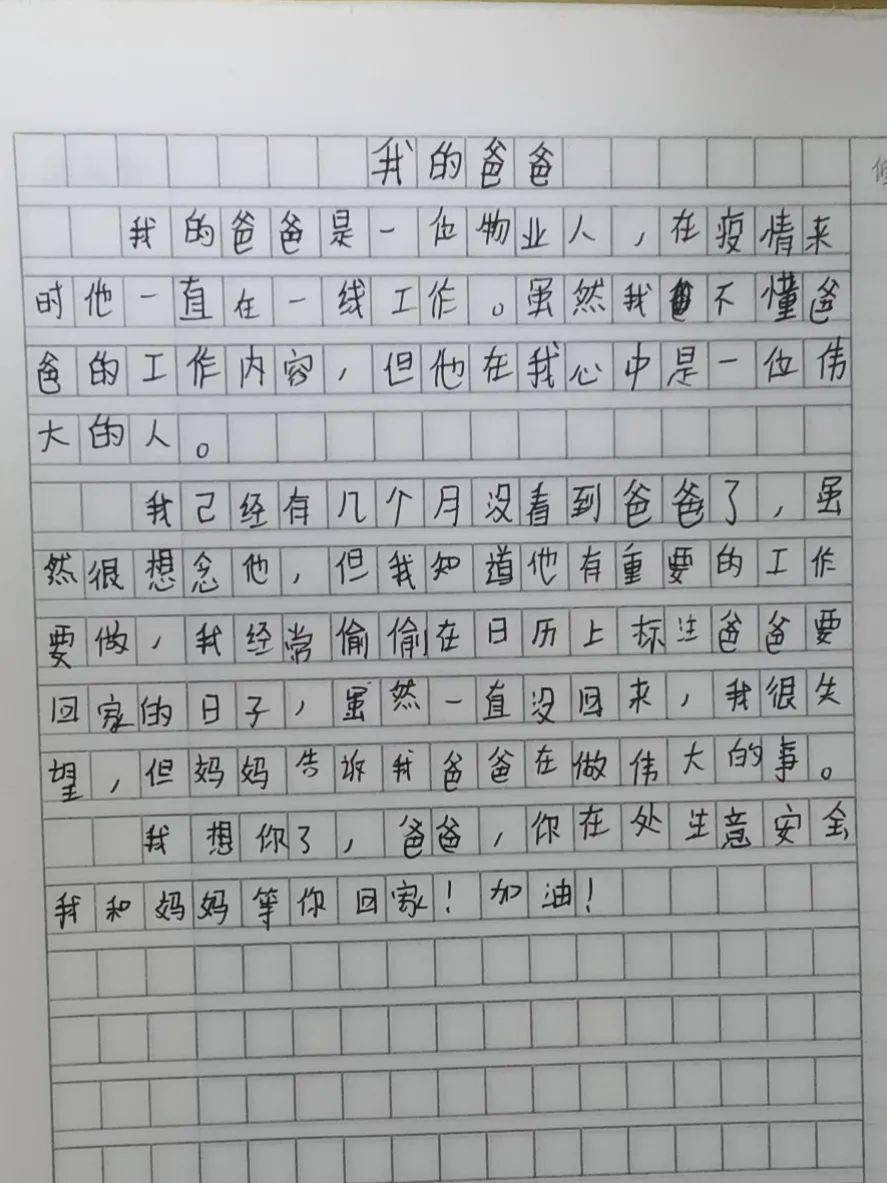 我的爸爸
我的爸爸是一位物业人，在疫情来
时他一直在一线工作。虽然我不懂爸
爸的工作内容，但他在我心中是一位伟
大的人。
我己经有几个月没看到爸爸了，虽
然很想念他，但我知道他有重要的工作
要做，我经常偷偷在日历上标注爸爸要
回家的日子，虽然一直没回来，我很失
望，但妈妈告诉我爸爸在做伟大的事。
我想你了，爸爸，你在处生意安全
我和妈妈等你回家！加油！